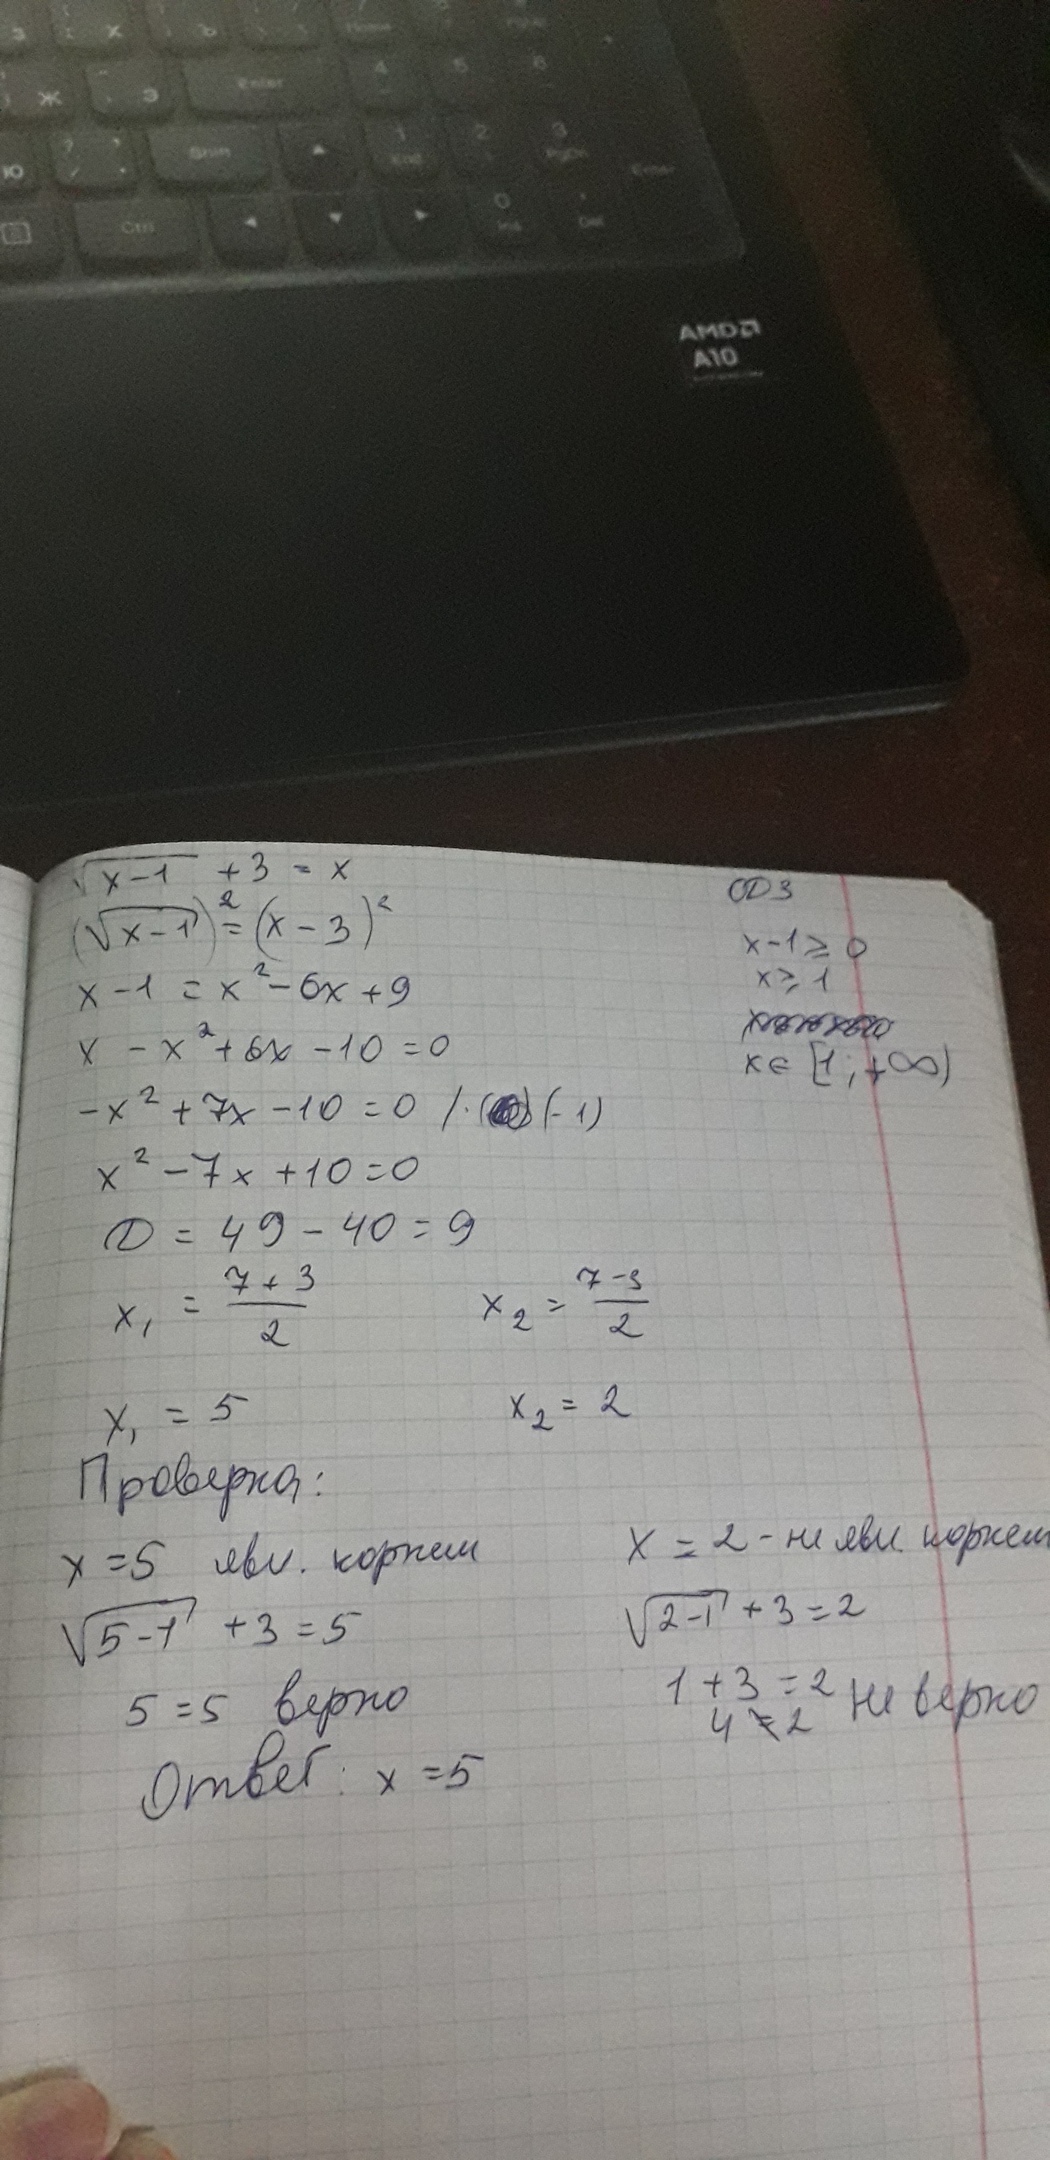 Ж
Э
Enter
4
5
6
Ю
?
Shift
1
End
2
3
PgDn
Enter
Ctrl
0
Ins
Del
AMD
A10
√(x-1) + 3 = x
(√(x-1))² = (x-3)²
x - 1 = x² - 6x + 9
x - x² + 6x - 10 = 0
-x² + 7x - 10 = 0 /·(-1)
x² - 7x + 10 = 0
D = 49 - 40 = 9
x₁ = (7+3)/2 x₂ = (7-3)/2
x₁ = 5 x₂ = 2
ОДЗ
x-1 ⩾ 0
x ⩾ 1
x ∈ [1; +∞)
Проверка:
x = 5 явл. корнем
√(5-1) + 3 = 5
5 = 5 верно
x = 2 - не явл. корнем
√(2-1) + 3 = 2
1 + 3 = 2 не верно
4 ≠ 2
Ответ: x = 5